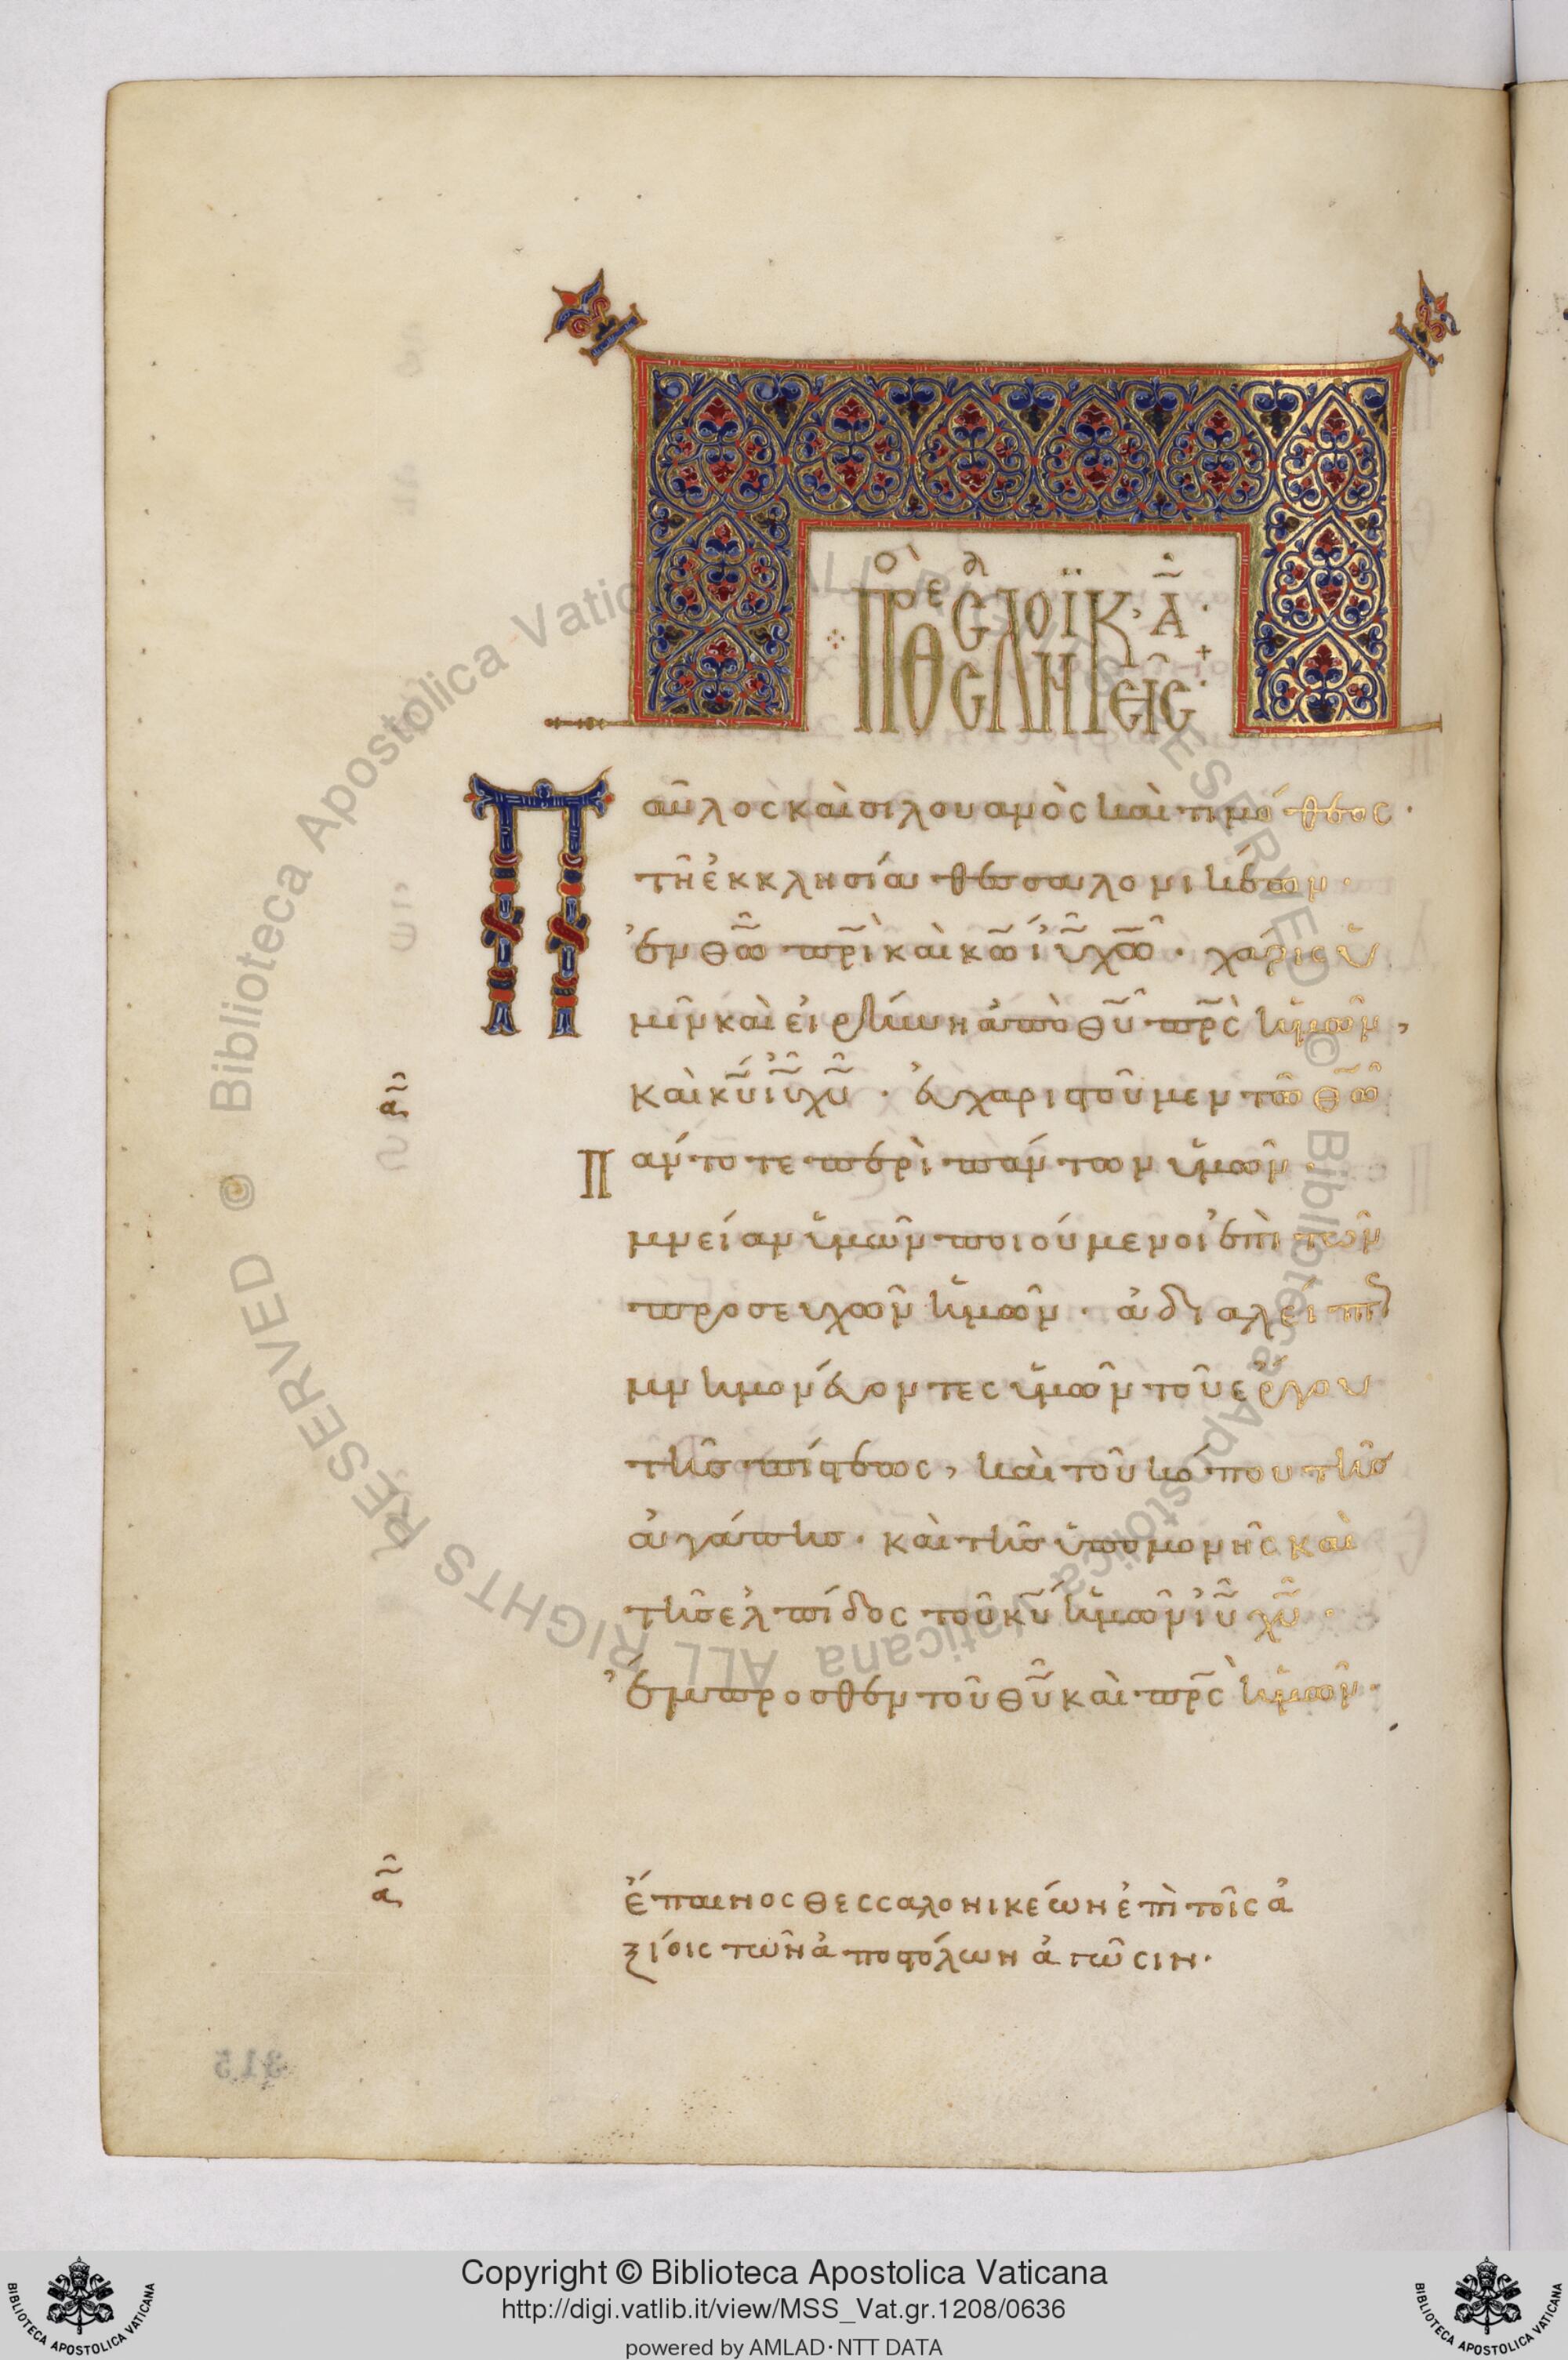 ΠΡΟΣ ΘΕΣΣΑΛΟΝΙΚ· Α·
Παῦλος καὶ σιλουανὸς καὶ τιμόθεος·
τῆ ἐκκλησία θεσσαλονικέων·
ἐν θ͞ω π͞ρὶ καὶ κ͞ω ἰ͞υ χ͞ω· χάρις ὑ
μῖν καὶ εἰρήνη ἀπὸ θ͞υ π͞ρς ἡμῶν,
καὶ κ͞υ ἰ͞υ χ͞υ· ἐυχαριστοῦμεν τῶ θ͞ω
Πάντοτε περὶ πάντων ὑμῶν·
μνείαν ὑμῶν ποιούμενοι ἐπὶ τῶν
προσευχῶν ἡμῶν· ἀδιαλείπτ
μνημονέυοντες ὑμῶν τοῦ ἔργου
τῆς πίστεως, καὶ τοῦ κόπου τῆς
ἀγάπης· καὶ τῆς ὑπομονῆς καὶ
τῆς ἐλπίδος τοῦ κ͞υ ἡμῶν ἰ͞υ χ͞υ·
ἔμπροσθεν τοῦ θ͞υ καὶ π͞ρς ἡμῶν·
α
α
ἔπαινος θεσσαλονικέων ἐπὶ τοῖς ἀ
ξίοις τῶν ἀποστόλων ἀγῶσιν·
315
© Biblioteca Apostolica Vaticana ALL RIGHTS RESERVED © Biblioteca Apostolica Vaticana ALL RIGHTS RESERVED
Copyright © Biblioteca Apostolica Vaticana
http://digi.vatlib.it/view/MSS_Vat.gr.1208/0636
powered by AMLAD·NTT DATA
BIBLIOTECA APOSTOLICA VATICANA
BIBLIOTECA APOSTOLICA VATICANA